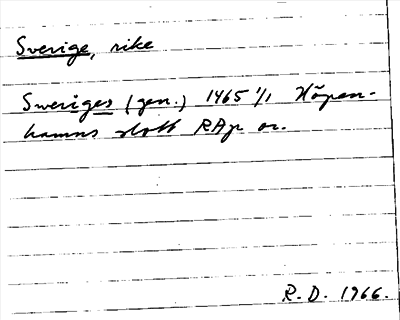 Sverige, rike
Sweriges (gen.) 1465 1/1 Köpen-
hamns slott RAp or.
R. D. 1966.